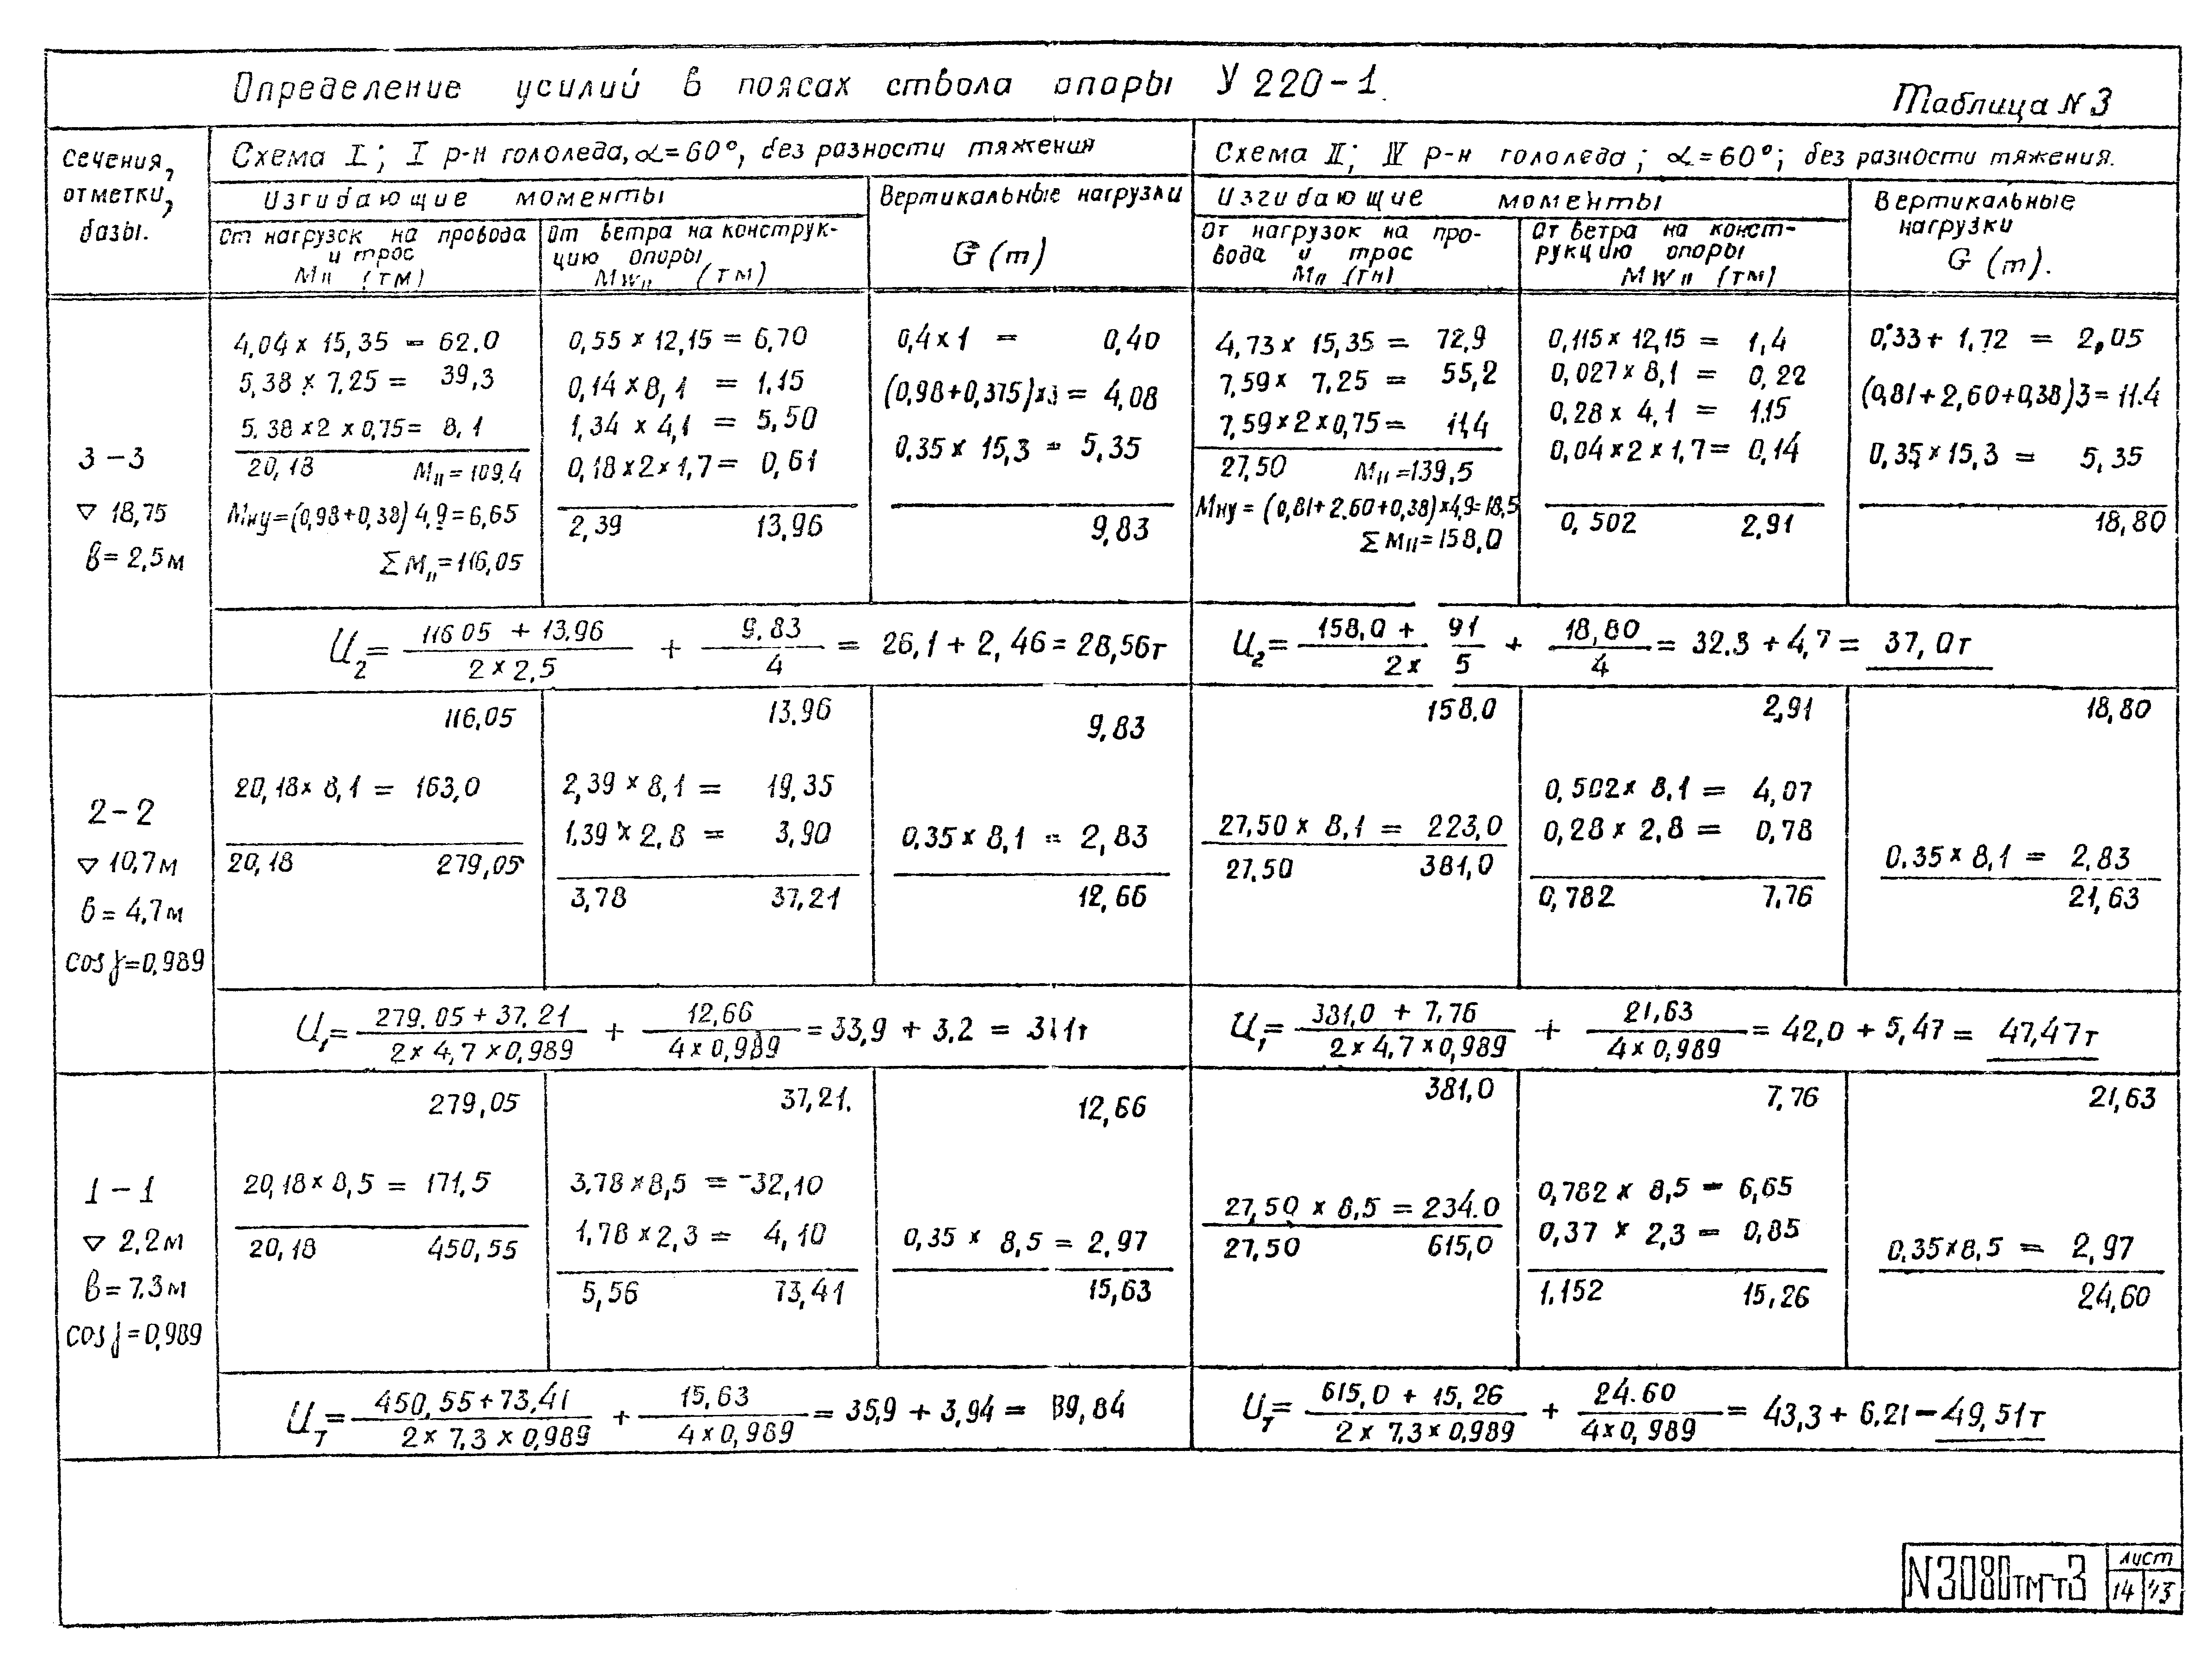 Определение усилий в поясах ствола опоры У 220-1.
Таблица N 3
Сечения, отметки, базы.
Схема I; I р-н гололеда, α=60°, без разности тяжения
Схема II; IV р-н гололеда; α=60°; без разности тяжения.
Изгибающие моменты
Вертикальные нагрузки
G (т)
Изгибающие моменты
Вертикальные
нагрузки
G (т).
От нагрузок на провода
и трос
MII (тм)
От ветра на конструк-
цию опоры
MwII (тм)
От нагрузок на про-
вода и трос
MII (тм)
От ветра на конст-
рукцию опоры
MwII (тм)
3-3
▽ 18,75
в=2,5м
4,04 x 15,35 = 62.0
5,38 x 7.25 = 39,3
5.38 x 2 x 0,75 = 8,1
20,18 MII=109,4
Mну=(0,98+0,38)4,9=6,65
ΣMII=116,05
0,55 x 12,15 = 6,70
0,14 x 8,1 = 1,15
1,34 x 4,1 = 5,50
0,18 x 2 x 1,7 = 0,61
2,39 13,96
0,4 x 1 = 0,40
(0,98+0,375)x3 = 4,08
0,35 x 15,3 = 5,35
9,83
4,73 x 15,35 = 72,9
7,59 x 7,25 = 55,2
7,59 x 2 x 0,75 = 11,4
27,50 MII=139,5
Mну=(0,81+2.60+0,38)x4,9=18,5
ΣMII=158,0
0,115 x 12,15 = 1,4
0,027 x 8,1 = 0,22
0,28 x 4,1 = 1,15
0,04 x 2 x 1,7 = 0,14
0,502 2,91
0,33 + 1,72 = 2,05
(0,81+2,60+0,38)3=11.4
0,35 x 15,3 = 5,35
18,80
U2= 116 05 + 13,96 / 2 x 2,5 + 9,83 / 4 = 26,1 + 2,46 = 28,56т
U2= 158,0 + 91 / 2x 5 + 18,80 / 4 = 32.3 + 4,7 = 37,0т
2-2
▽ 10,7м
в=4,7м
cos γ=0,989
116,05
20,18 x 8,1 = 163,0
20,18 279,05
13,96
2,39 x 8,1 = 19,35
1,39 x 2,8 = 3,90
3,78 37,21
9,83
0,35 x 8,1 = 2,83
12,66
158.0
27,50 x 8,1 = 223,0
27.50 381,0
2,91
0,502 x 8.1 = 4,07
0,28 x 2,8 = 0,78
0,782 7,76
18,80
0.35 x 8,1 = 2,83
21,63
U1= 279.05 + 37,21 / 2 x 4,7 x 0,989 + 12,66 / 4 x 0,989 = 33,9 + 3.2 =
U1= 381,0 + 7,76 / 2 x 4,7 x 0,989 + 21,63 / 4 x 0,989 = 42,0 + 5,47 = 47,47т
1-1
▽ 2,2м
в=7,3м
cos γ=0,989
279,05
20,18 x 8,5 = 171,5
20,18 450,55
37,21.
3,78 x 8,5 = 32,10
1,78 x 2,3 = 4,10
5,56 73,41
12,66
0,35 x 8,5 = 2,97
15,63
381,0
27,50 x 8,5 = 234.0
27,50 615,0
7,76
0,782 x 8,5 = 6,65
0,37 x 2,3 = 0,85
1.152 15,26
21,63
0.35x8,5 = 2,97
24,60
U7= 450,55+73,41 / 2 x 7.3 x 0,989 + 15,63 / 4 x 0,989 = 35,9 + 3,94 = 39,84
U7= 615,0 + 15,26 / 2 x 7,3 x 0.989 + 24.60 / 4x0,989 = 43,3 + 6.21 = 49,51т
N3080тмт3
лист
14